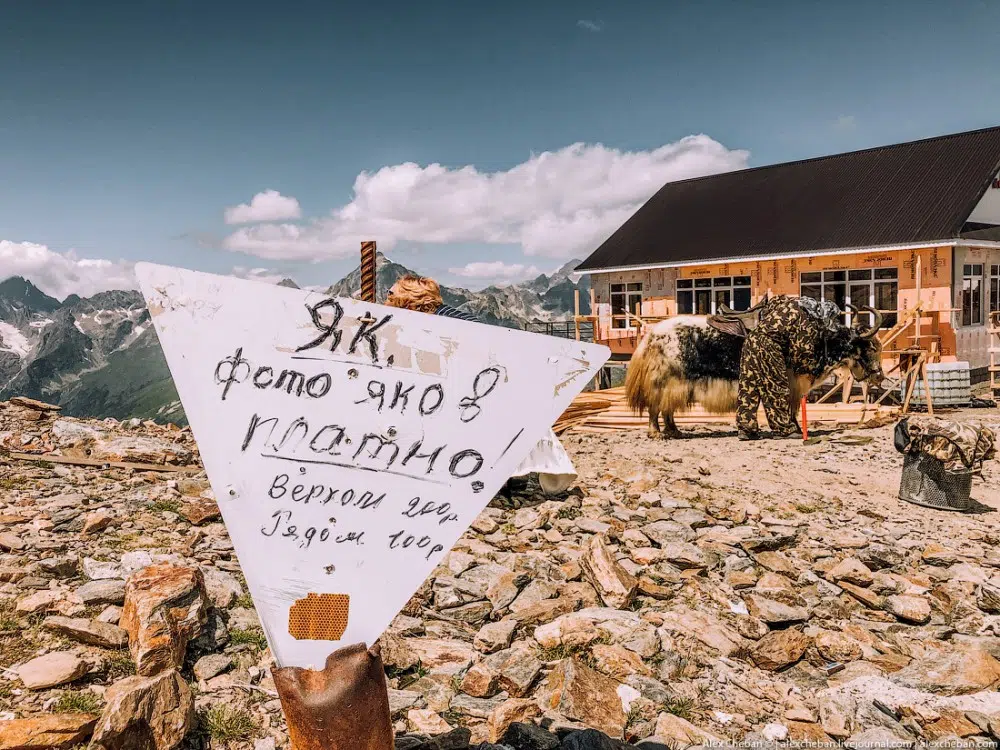 ЯК.
фото яко8
платно!
Верхом 200р
Рядом 100р
Alex Cheban © | alexcheban.livejournal.com | alexcheban.com